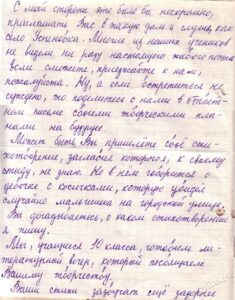 С моей стороны это было бы нескромно,
приглашать Вас в такую даль и глушь, как
село Эсхновка. Многие из наших учеников
не видели ни разу настоящего живого поэта.
Если сможете, приезжайте к нам,
пожалуйста. Ну, а если встретиться не
суждено, то поделитесь с нами в ответ-
ном письме своими творческими пла-
нами на будущее.
Может быть, Вы пришлёте своё сти-
хотворение, заглавия которого, к своему
стыду, не знаю. Но в нём говорится о
девочке с косичками, которую увидел
случайно мальчишка на городской улице.
Вы догадываетесь, о каком стихотворении
я пишу.
Мы, учащиеся 10 класса, готовим ли-
тературный вечер, который посвящаем
Вашему творчеству.
Ваши стихи зазвучат ещё задорнее